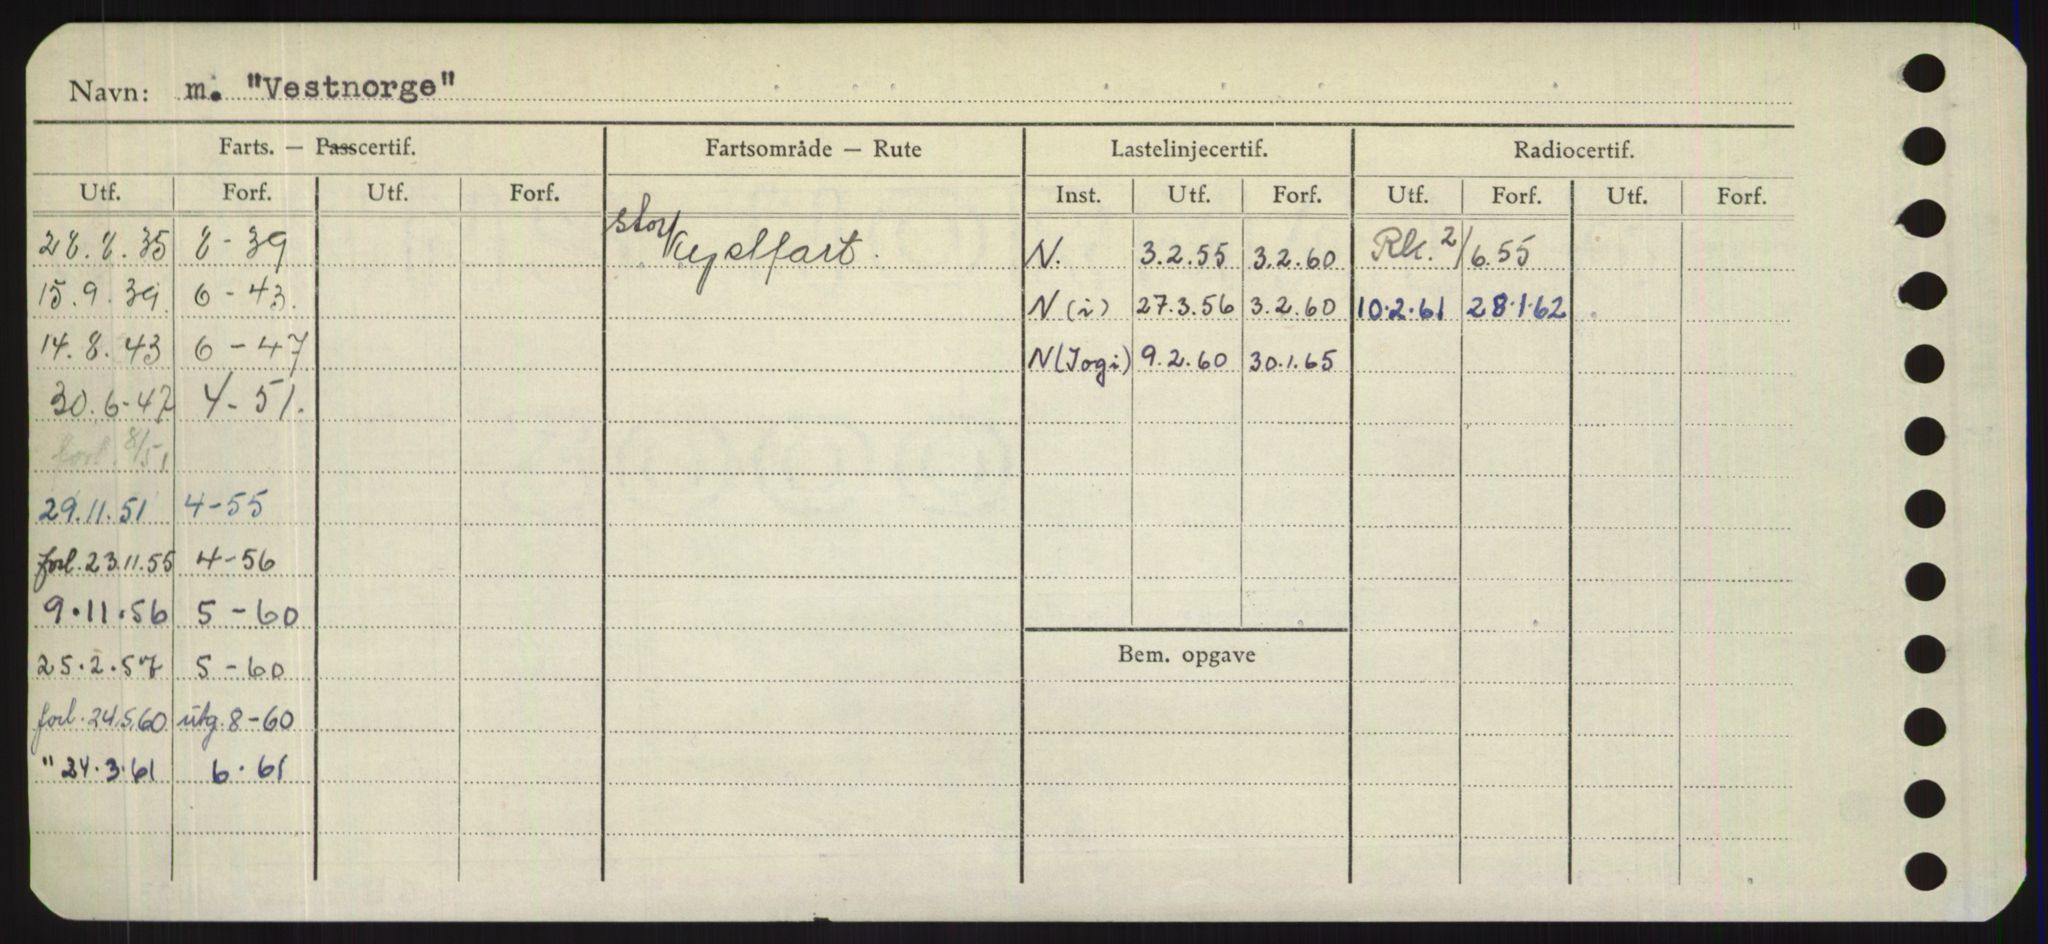 Navn: m. "Vestnorge"
Farts. — Passcertif. Fartsområde — Rute Lastelinjecertif. Radiocertif.
Utf. Forf. Utf. Forf. Inst. Utf. Forf. Utf. Forf. Utf. Forf.
28.8.35 8-39 stor Kystfart. N. 3.2.55 3.2.60 Rk. 2/6.55
15.9.39. 6-43. N(i) 27.3.56 3.2.60 10.2.61 28.1.62
14.8.43 6-47 N(Iogi) 9.2.60 30.1.65
30.6-47 4-51.
forl. 8/51
29.11.51 4-55
forl. 23.11.55 4-56
9.11.56 5-60
25.2.57 5-60 Bem. opgave
forl. 24.5.60 utg. 8-60
" 24.3.61 6.61